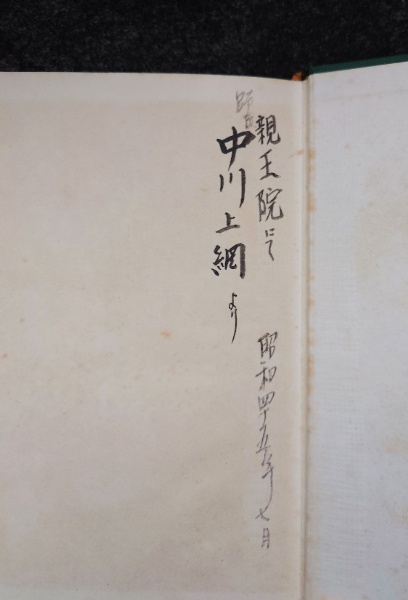 親王院にて
昭和四十五年七月
中川上綱より